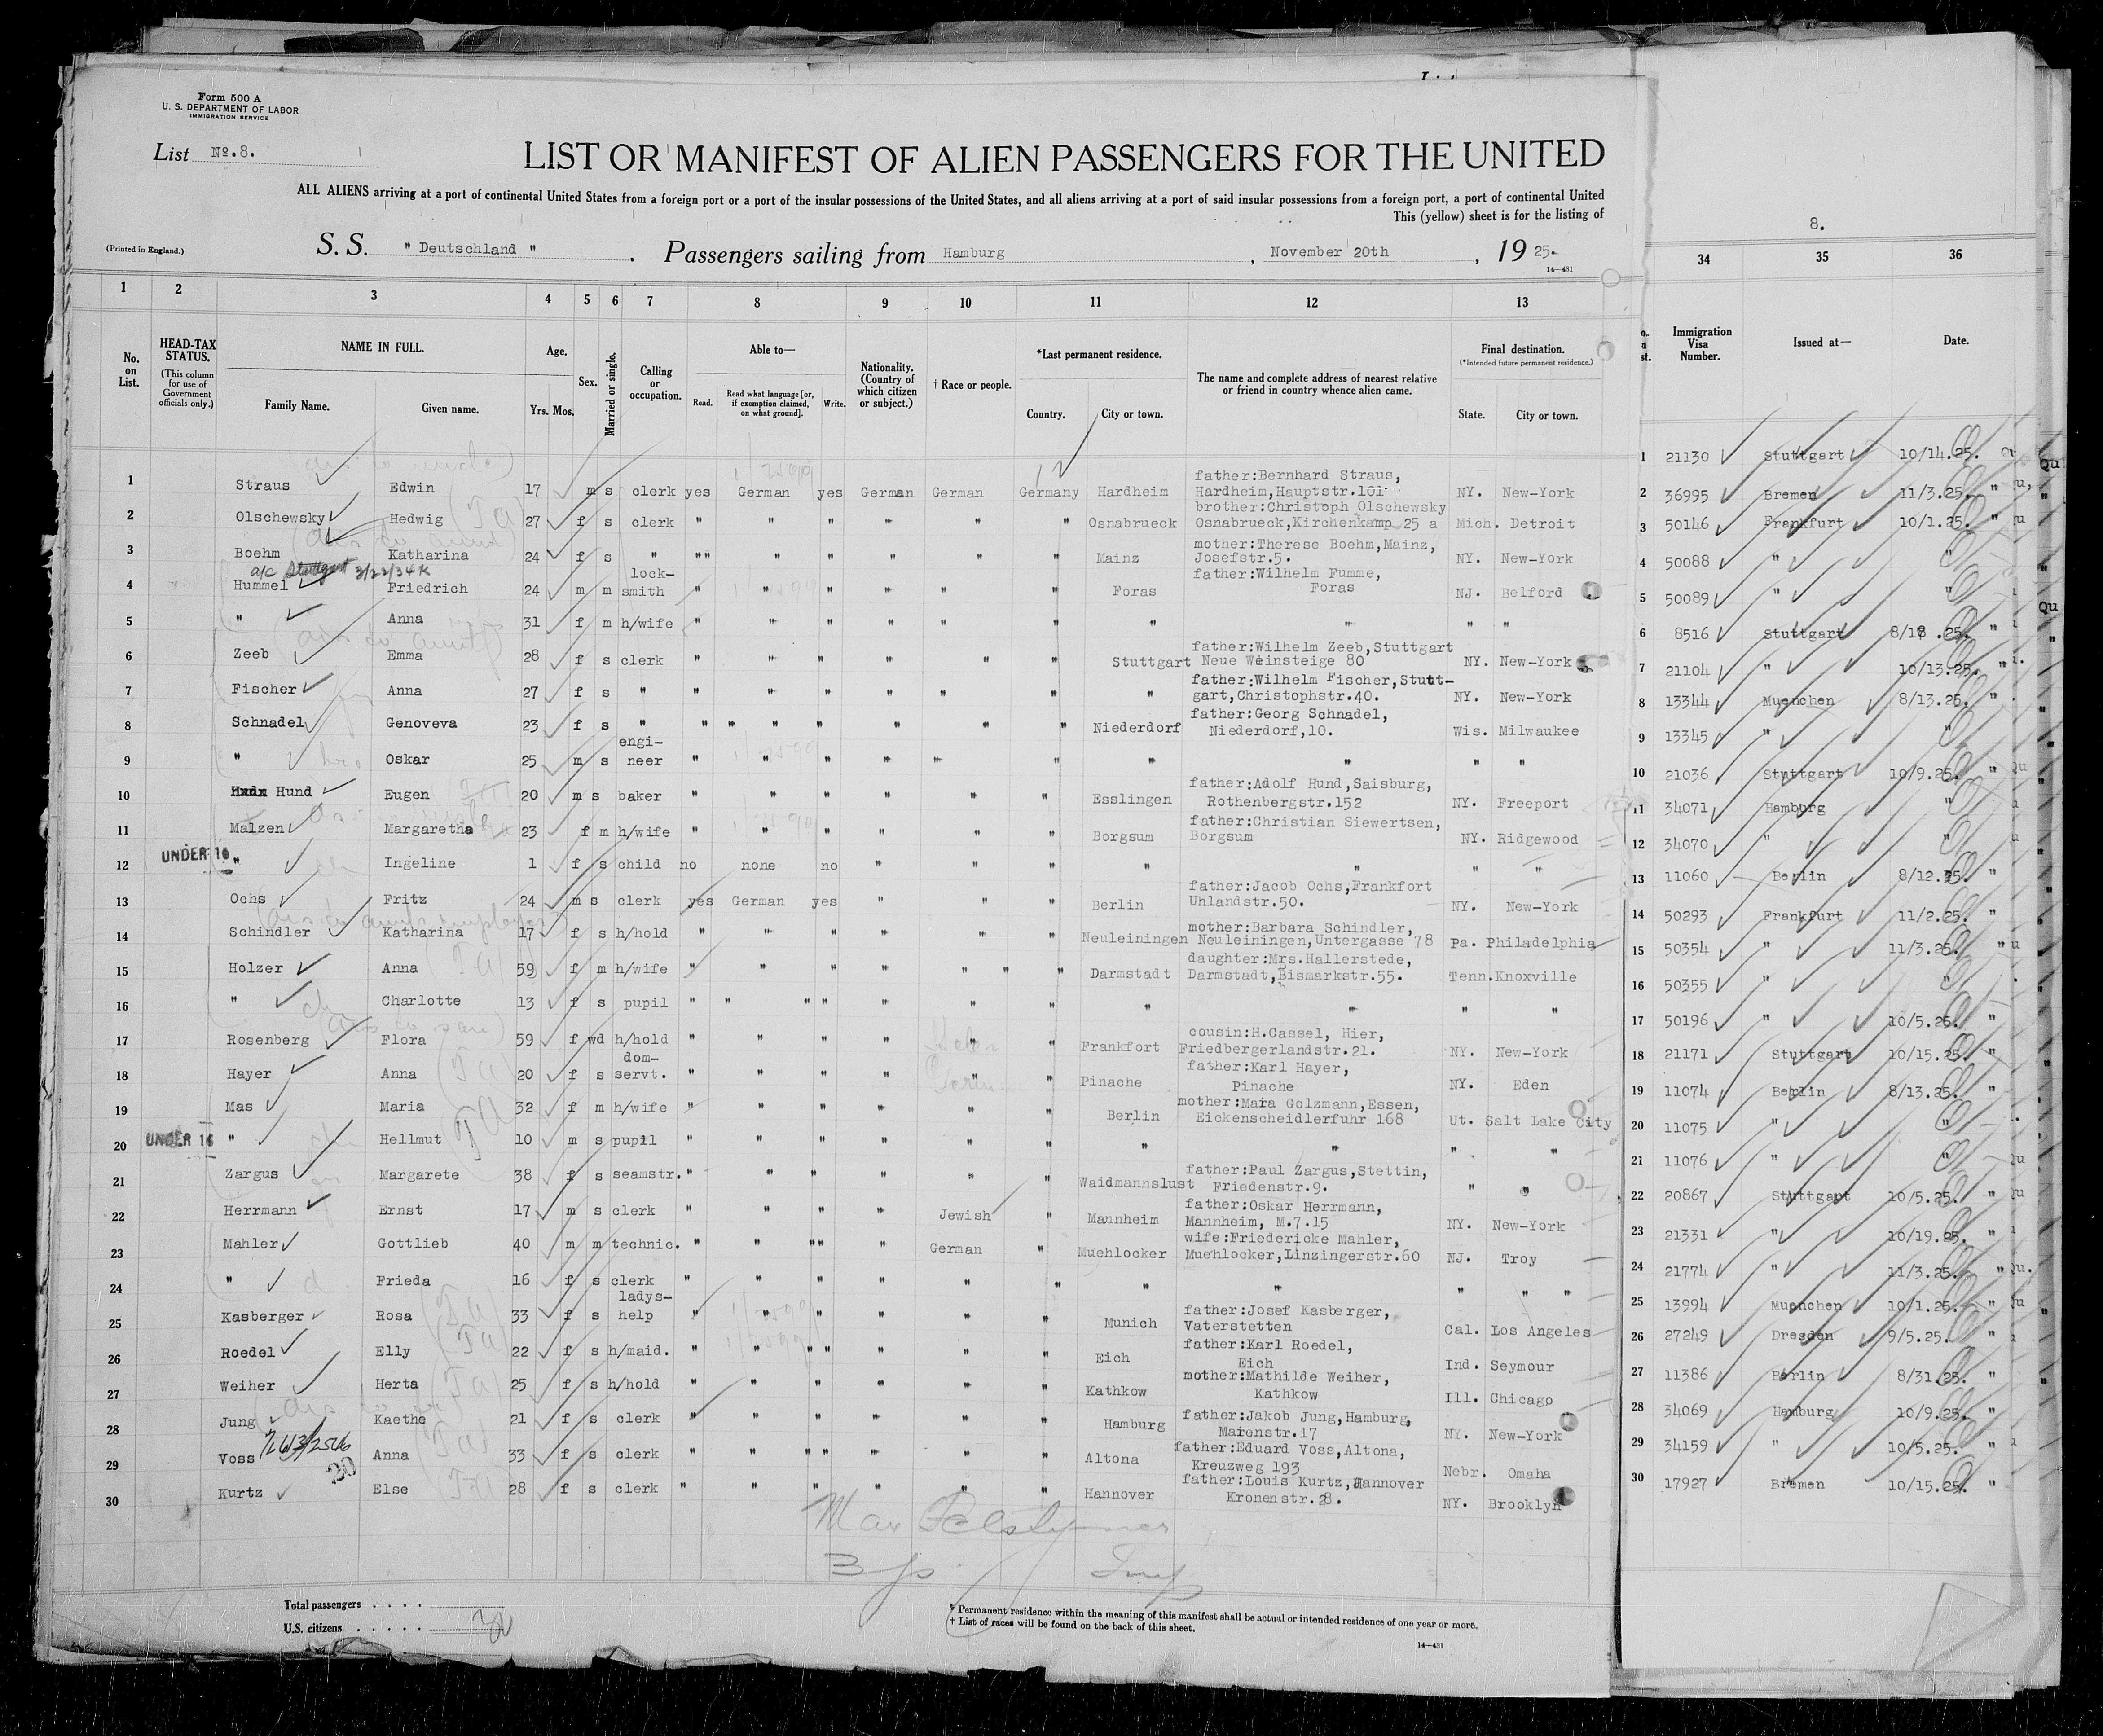 Form 500 A
U. S. DEPARTMENT OF LABOR
IMMIGRATION SERVICE
List No. 8.
LIST OR MANIFEST OF ALIEN PASSENGERS FOR THE UNITED
ALL ALIENS arriving at a port of continental United States from a foreign port or a port of the insular possessions of the United States, and all aliens arriving at a port of said insular possessions from a foreign port, a port of continental United
This (yellow) sheet is for the listing of
8.
(Printed in England.) S. S. " Deutschland " . Passengers sailing from Hamburg , November 20th , 19 25.
14—431
1 2 3 4 5 6 7 8 9 10 11 12 13 34 35 36
No. on List. HEAD-TAX STATUS. (This column for use of Government officials only.) NAME IN FULL. Family Name. Given name. Age. Yrs. Mos. Sex. Married or single. Calling or occupation. Able to— Read. Read what language [or, if exemption claimed, on what ground]. Write. Nationality. (Country of which citizen or subject.) † Race or people. *Last permanent residence. Country. City or town. The name and complete address of nearest relative or friend in country whence alien came. Final destination. (*Intended future permanent residence.) State. City or town. Immigration Visa Number. Issued at— Date.
1 Straus Edwin 17 m s clerk yes German yes German German Germany Hardheim father:Bernhard Straus, Hardheim,Hauptstr.101 NY. New-York 1 21130 Stuttgart 10/14.25.
2 Olschewsky Hedwig 27 f s clerk " " " " " " Osnabrueck brother:Christoph Olschewsky Osnabrueck,Kirchenkamp 25 a Mich. Detroit 2 36995 Bremen 11/3.25. "
3 Boehm Katharina 24 f s " " " " " " " " Mainz mother:Therese Boehm,Mainz, Josefstr.5. NY. New-York 3 50146 Frankfurt 10/1.25. "
a/c Stuttgart 3/22/34
4 Hummel Friedrich 24 m m lock-smith " " " " " " Foras father:Wilhelm Fumme, Foras NJ. Belford 4 50088 " "
5 " Anna 31 f m h/wife " " " " " " " " " " 5 50089 " "
6 Zeeb Emma 28 f s clerk " " " " " " Stuttgart father:Wilhelm Zeeb,Stuttgart Neue Weinsteige 80 NY. New-York 6 8516 Stuttgart 8/18 .25. "
7 Fischer Anna 27 f s " " " " " " " " father:Wilhelm Fischer,Stutt-gart,Christophstr.40. NY. New-York 7 21104 " 10/13.25. "
8 Schnadel Genoveva 23 f s " " " " " " " " Niederdorf father:Georg Schnadel, Niederdorf,10. Wis. Milwaukee 8 13344 Muenchen 8/13.25. "
9 " Oskar 25 m s engi-neer " " " " " " " " " " 9 13345 " "
10 Hund Eugen 20 m s baker " " " " " " Esslingen father:Adolf Hund,Saisburg, Rothenbergstr.152 NY. Freeport 10 21036 Stuttgart 10/9.25. "
11 Malzen Margaretha 23 f m h/wife " " " " " " Borgsum father:Christian Siewertsen, Borgsum NY. Ridgewood 11 34071 Hamburg "
12 UNDER 16 " Ingeline 1 f s child no none no " " " " " " " 12 34070 " "
13 Ochs Fritz 24 m s clerk yes German yes " " " Berlin father:Jacob Ochs,Frankfort Uhlandstr.50. NY. New-York 13 11060 Berlin 8/12.25. "
14 Schindler Katharina 17 f s h/hold " " " " " " Neuleiningen mother:Barbara Schindler, Neuleiningen,Untergasse 78 Pa. Philadelphia 14 50293 Frankfurt 11/2.25. "
15 Holzer Anna 59 f m h/wife " " " " " " " Darmstadt daughter:Mrs.Hallerstede, Darmstadt,Bismarkstr.55. Tenn. Knoxville 15 50354 " 11/3.25. "
16 " Charlotte 13 f s pupil " " " " " " " " " " " 16 50355 " "
17 Rosenberg Flora 59 f wd h/hold " " " " " " Frankfort cousin:H.Cassel, Hier, Friedbergerlandstr.21. NY. New-York 17 50196 " 10/5.25.
18 Hayer Anna 20 f s dom-servt. " " " " " " Pinache father:Karl Hayer, Pinache NY. Eden 18 21171 Stuttgart 10/15.25. "
19 Mas Maria 32 f m h/wife " " " " " " Berlin mother:Maria Golzmann,Essen, Eickenscheidlerfuhr 168 Ut. Salt Lake City 19 11074 Berlin 8/13.25. "
20 UNDER 16 " Hellmut 10 m s pupil " " " " " " " " " " 20 11075 " "
21 Zargus Margarete 38 f s seamstr. " " " " " " Waidmannslust father:Paul Zargus,Stettin, Friedenstr.9. " " 21 11076 " "
22 Herrmann Ernst 17 m s clerk " " " " Jewish " Mannheim father:Oskar Herrmann, Mannheim, M.7.15 NY. New-York 22 20867 Stuttgart 10/5.25. "
23 Mahler Gottlieb 40 m m technic. " " " " " German " Muehlocker wife:Friedericke Mahler, Muehlocker,Linzingerstr.60 NJ. Troy 23 21331 " 10/19.25. "
24 " Frieda 16 f s clerk " " " " " " " " " " " 24 21774 " 11/3.25. "
25 Kasberger Rosa 33 f s ladys-help " " " " " " Munich father:Josef Kasberger, Vaterstetten Cal. Los Angeles 25 13994 Muenchen 10/1.25. "
26 Roedel Elly 22 f s h/maid. " " " " " " " Eich father:Karl Roedel, Eich Ind. Seymour 26 27249 Dresden 9/5.25. "
27 Weiher Herta 25 f s h/hold " " " " " " Kathkow mother:Mathilde Weiher, Kathkow Ill. Chicago 27 11386 Berlin 8/31.25. "
28 Jung Kaethe 21 f s clerk " " " " " " Hamburg father:Jakob Jung,Hamburg, Marenstr.17 NY. New-York 28 34069 Hamburg 10/9.25. "
29 Voss Anna 33 f s clerk " " " " " " " Altona father:Eduard Voss,Altona, Kreuzweg 193 Nebr. Omaha 29 34159 " 10/5.25. "
30
30 Kurtz Else 28 f s clerk " " " " " " Hannover father:Louis Kurtz,Hannover Kronenstr.28. NY. Brooklyn 30 17927 Bremen 10/15.25. "
Total passengers . . . .
U.S. citizens . . . . .
* Permanent residence within the meaning of this manifest shall be actual or intended residence of one year or more.
† List of races will be found on the back of this sheet.
14—431